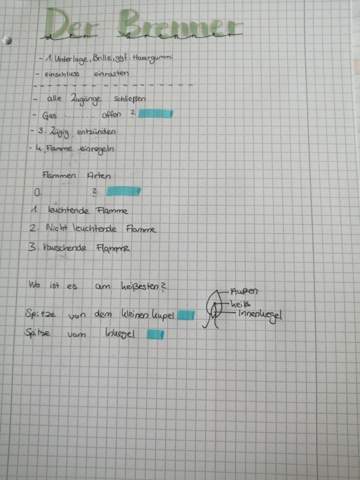 Der Brenner
- 1. Unterlage, Brille, ggf. Haargummi
- einschließ einrasten
- alle Zugänge schließen
- Gas offen 2.
- 3. Zügig entzünden
- 4. Flamme einregeln
Flammen Arten
0. 2.
1. leuchtende Flamme
2. Nicht leuchtende Flamme
3. rauschende Flamme
Wo ist es am heißesten?
Spitze von dem kleinen
Spitze vom
Außen
heiß
Innenkegel